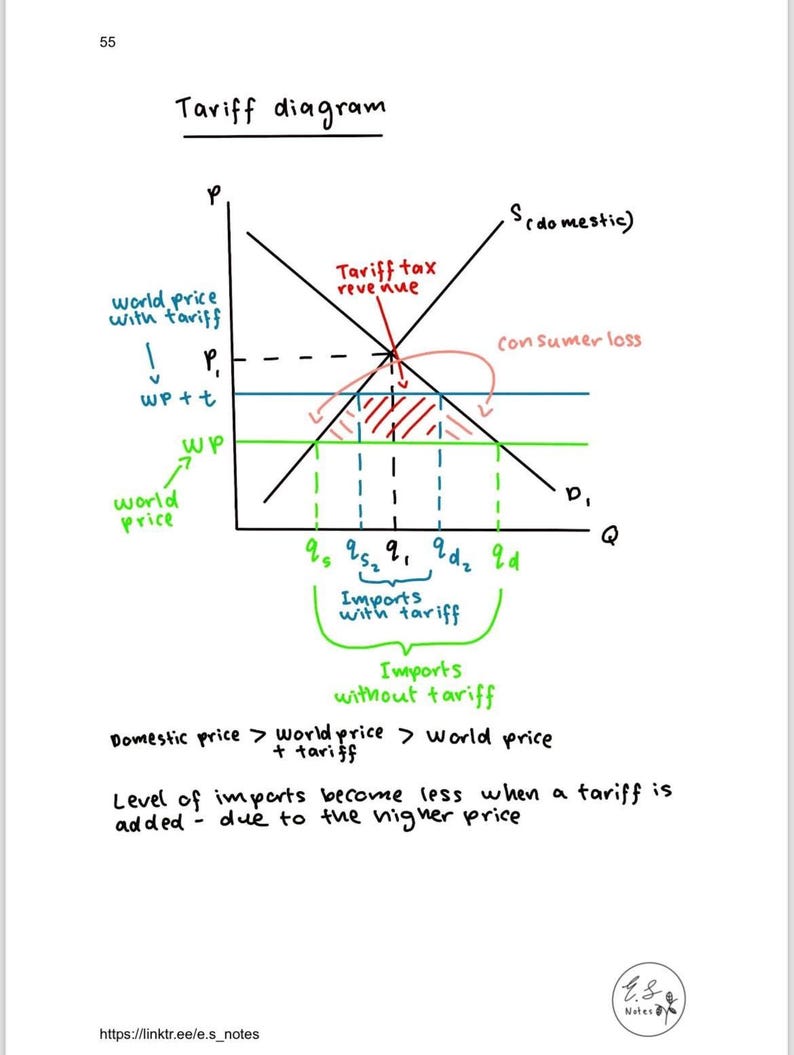 55
Tariff diagram
P
S(domestic)
Tariff tax
revenue
world price
with tariff
consumer loss
P₁
WP + t
WP
world
price
D₁
Q
qs
qs₂
q₁
qd₂
qd
Imports
with tariff
Imports
without tariff
Domestic price > world price > world price
+ tariff
Level of imports become less when a tariff is
added - due to the higher price
E.S
Notes
https://linktr.ee/e.s_notes